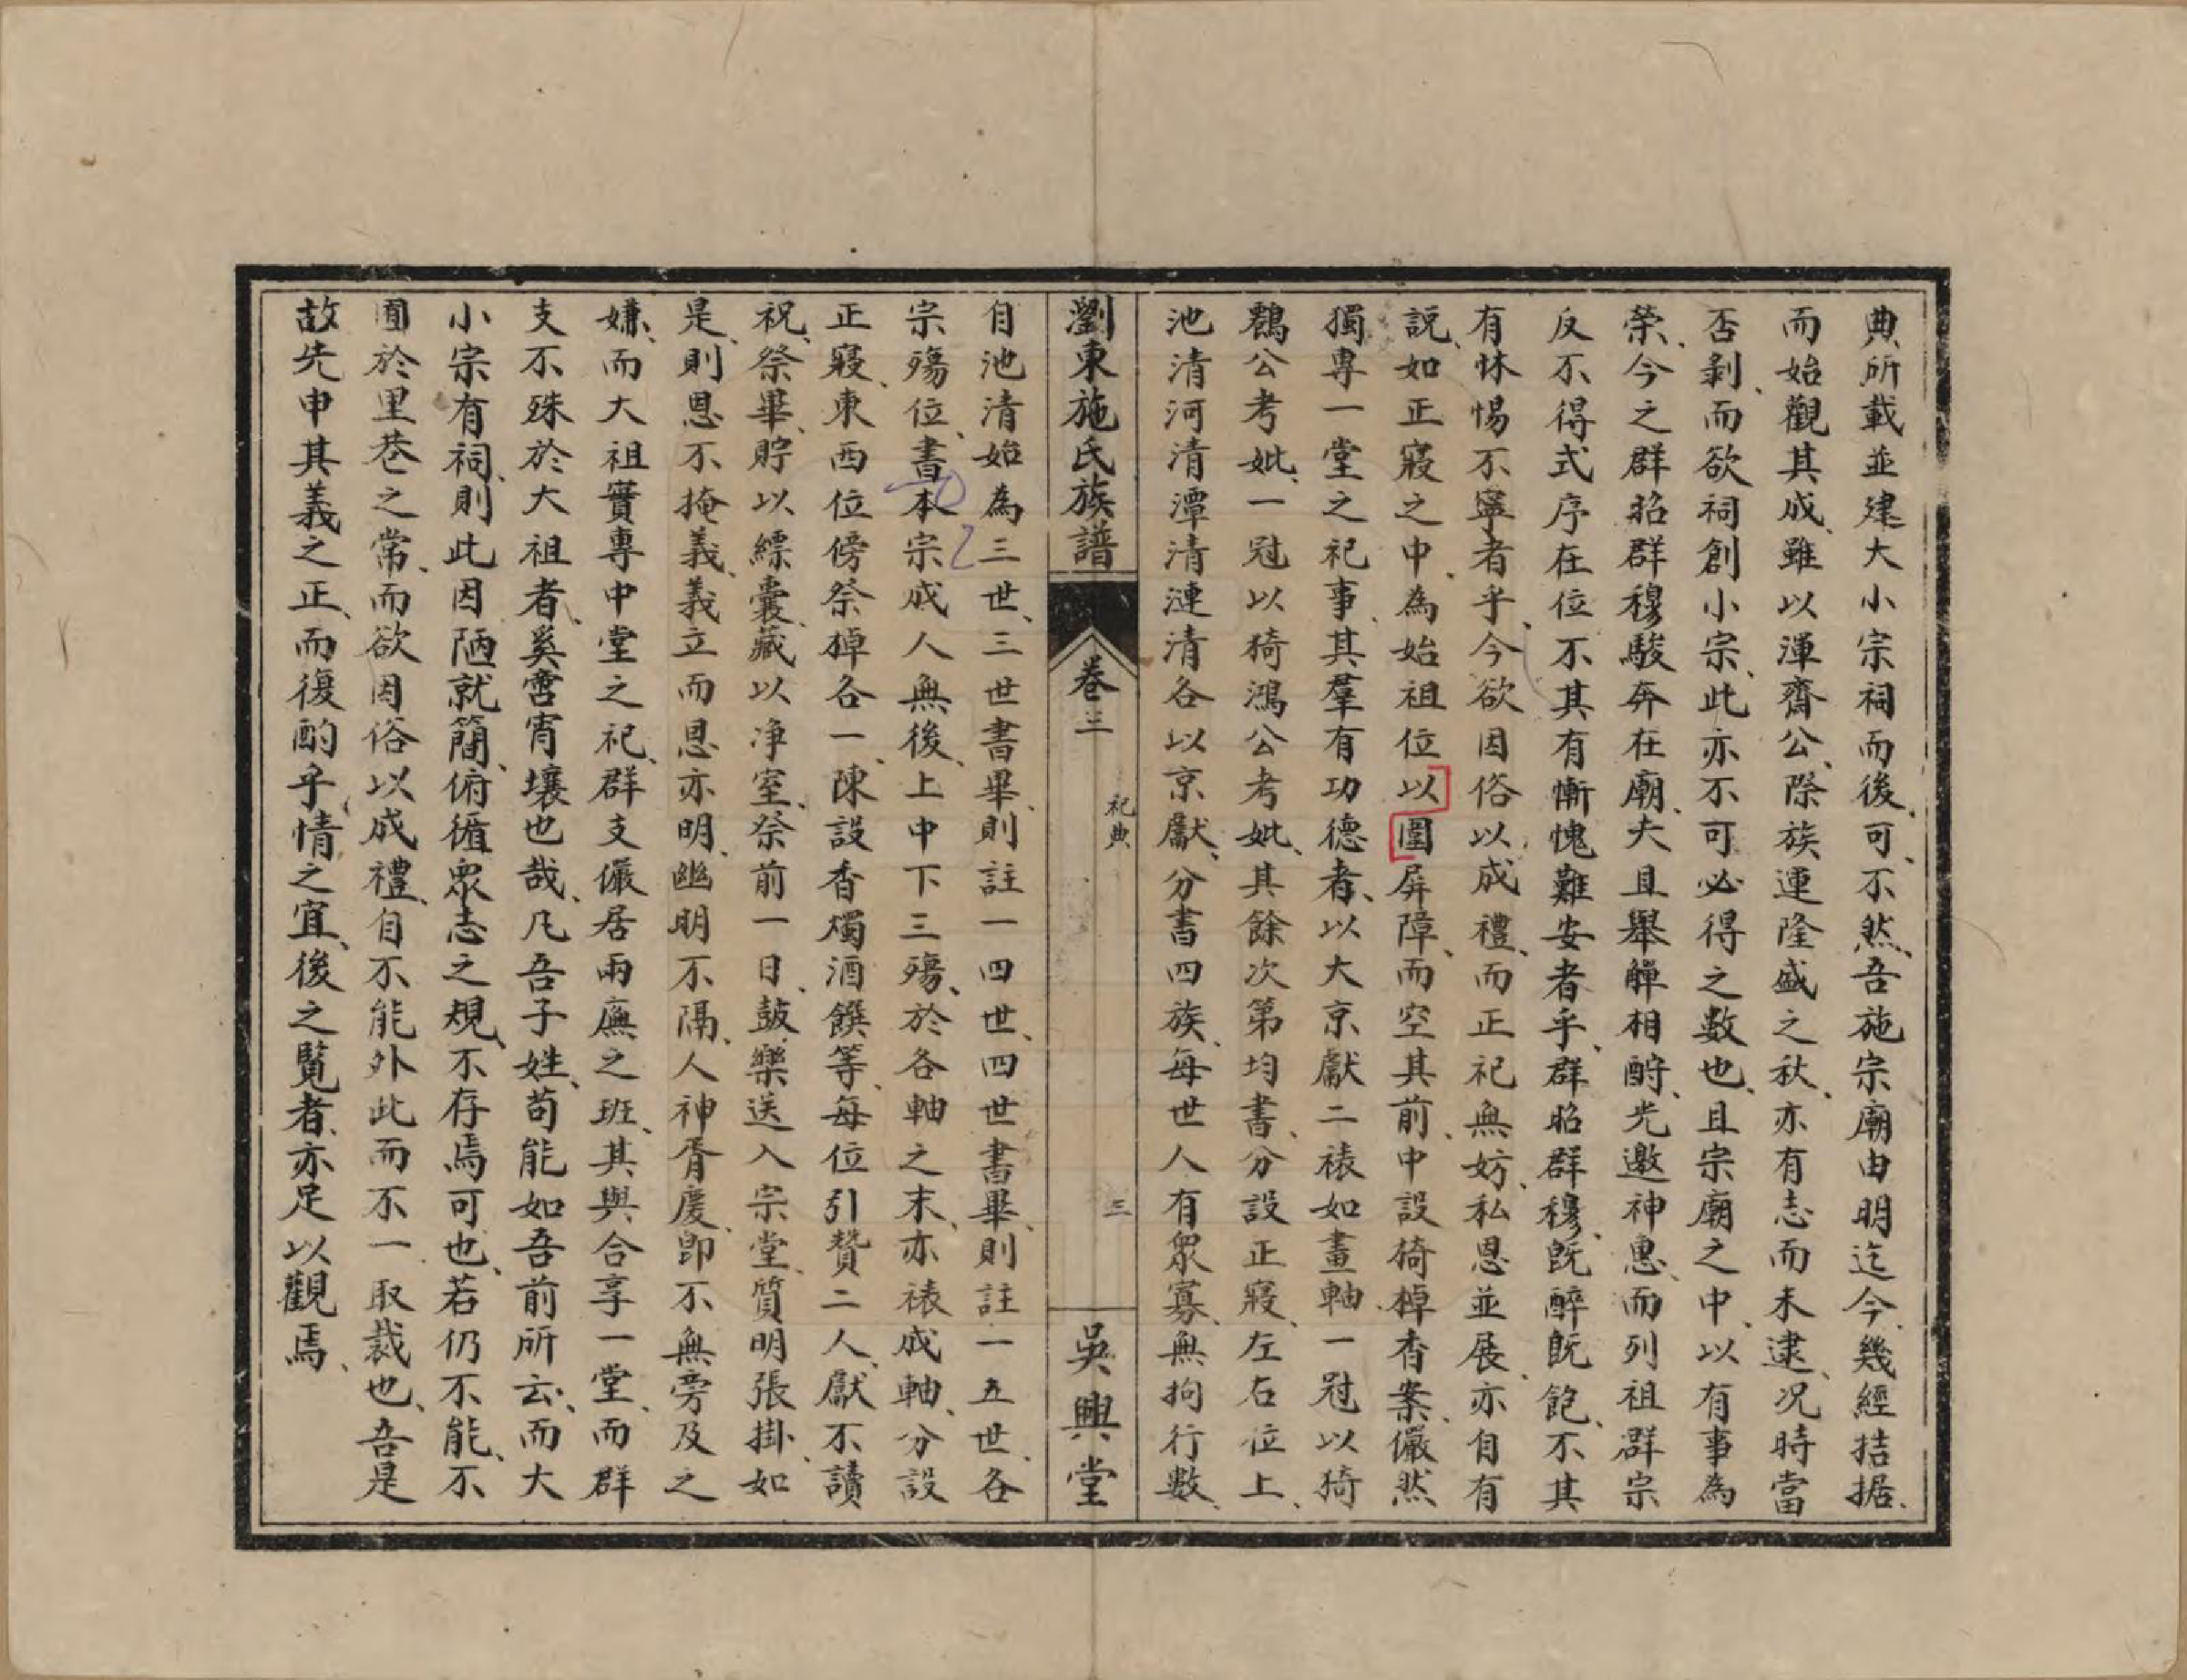 典所載並建大小宗祠而後、可、不然、吾施宗廟由明迄今、幾經拮据、
而始觀其成、雖以渾齋公、際族運隆盛之秋、亦有志而未逮、况時當
否剥、而欲祠創小宗、此亦不可必得之數也、且宗廟之中、以有事為
榮、今之群昭群穆駿奔在廟、夫且舉觶相酧、光邀神惠、而列祖群宗
反不得式序在位不其有慚愧難安者乎、群昭群穆、旣醉旣飽、不其
有怵惕不寧者乎、今欲因俗以成禮、而正祀無妨、私恩並展、亦自有
說、如正寢之中、為始祖位以圍屏障、而空其前、中設猗棹香案、儼然
獨專一堂之祀事、其羣有功德者、以大京獻二裱如畫軸一冠以猗
鶴公考妣、一冠以猗鴻公考妣、其餘次第均書、分設正寢、左右位上、
池清河清潭清漣清各以京獻、分書四族、每世人有眾寡、無拘行數、
瀏東施氏族譜
卷三
祀典
三
吳興堂
自池清始為三世、三世書畢、則註一四世、四世書畢、則註一五世、各
宗殤位、書本宗成人無後、上中下三殤、於各軸之末、亦裱成軸、分設
正寢、東西位傍祭棹各一、陳設香燭酒饌等、每位引贊二人、獻不讀
祝、祭畢、貯以縹囊、藏以净室、祭前一日、鼓樂送入宗堂、質明張掛、如
是、則恩不掩義、義立而恩亦明、幽明不隔、人神胥慶、即不無旁及之
嫌、而大祖實專中堂之祀、群支儼居兩廡之班、其與合享一堂、而群
支不殊於大祖者、奚啻宵壤也哉、凡吾子姓、苟能如吾前所云、而大
小宗有祠、則此因陋就簡、俯循眾志之規、不存焉可也、若仍不能、不
囿於里巷之常、而欲因俗以成禮、自不能外此而不一取裁也、吾是
故先申其義之正、而復酌乎情之宜、後之覧者、亦足以觀焉、